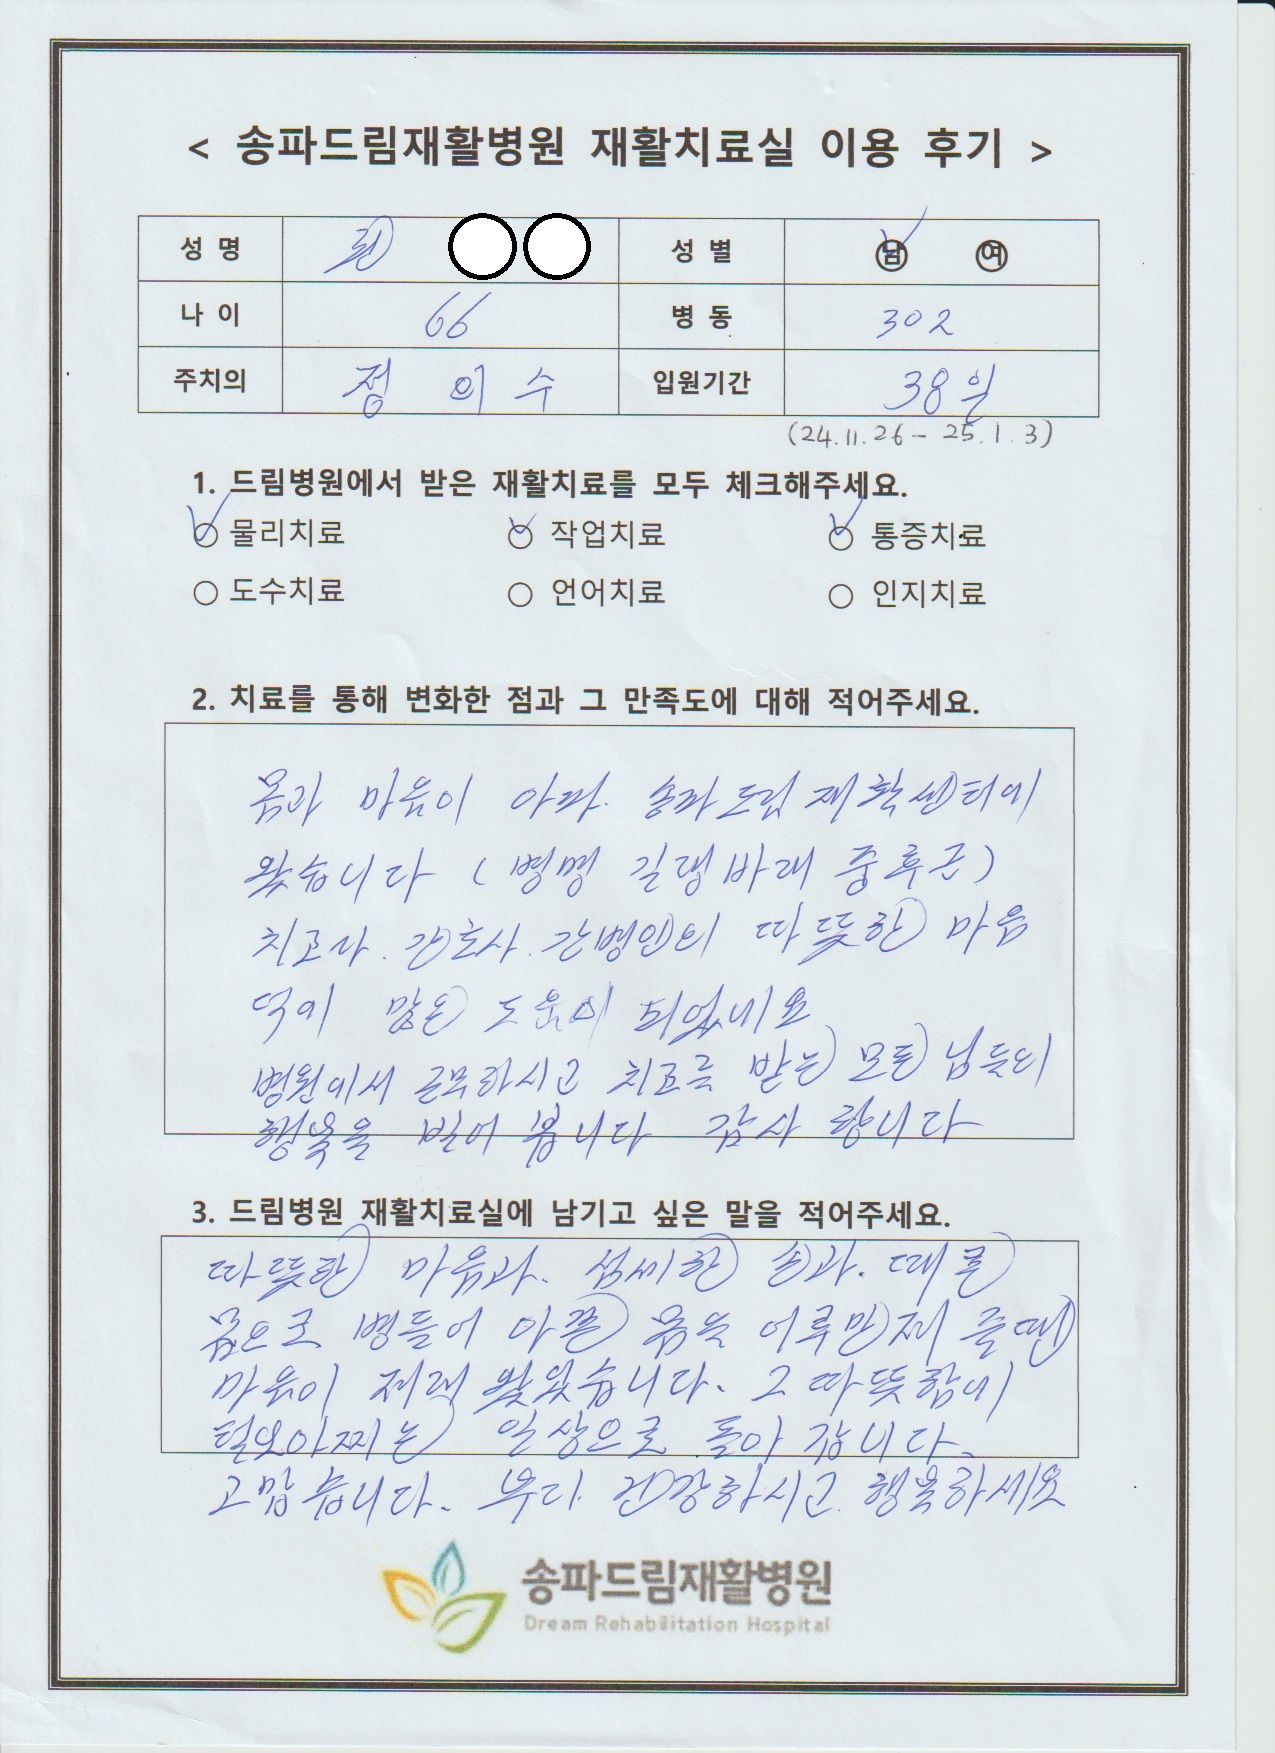 < 송파드림재활병원 재활치료실 이용 후기 >
성 명 성 별 남 여
나 이 66 병 동 302
주치의 정 의 수 입원기간 38일
(24.11.26 - 25.1.3)
1. 드림병원에서 받은 재활치료를 모두 체크해주세요.
물리치료 작업치료 통증치료
도수치료 언어치료 인지치료
2. 치료를 통해 변화한 점과 그 만족도에 대해 적어주세요.
몸과 마음이 아파. 송파드림 재활센터에
왔습니다 ( 병명 길랭바래 중후군)
치료사. 간호사. 간병인의 따뜻한 마음
덕에 많은 도움이 되었네요
병원에서 근무하시고 치료를 받는 모든 님들의
행복을 빌어 봅니다 감사 합니다
3. 드림병원 재활치료실에 남기고 싶은 말을 적어주세요.
따뜻한 마음과. 섬세한 손과. 때론
몸으로 병들어 아픈 몸을 어루만져 줄땐
마음이 저려 왔었습니다. 그 따뜻함에
일상으로 돌아 갑니다.
고맙습니다. 부디 건강하시고. 행복하세요
송파드림재활병원
Dream Rehabilitation Hospital